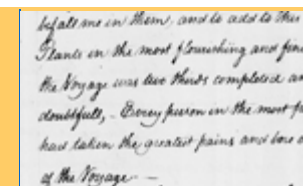 befall me in them, and to add to this
Plants in the most flourishing and fine
the Voyage was two thirds completed an
doubtfull, - Every person in the most p
had taken the greatest pains and bore
of the Voyage -